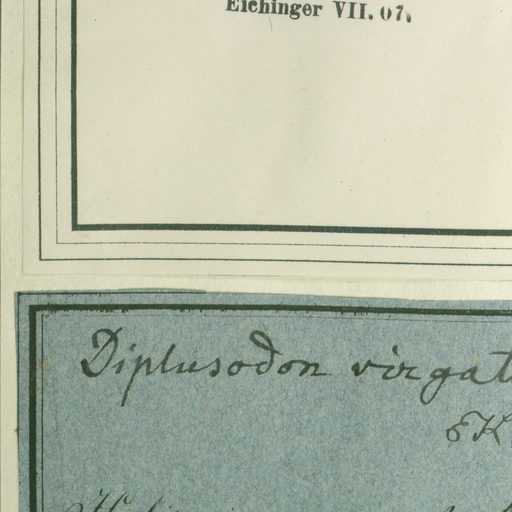 Eichinger VII. 07.
Diplusodon virgat